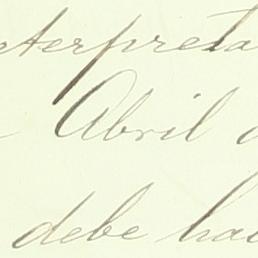 nterpreta
Abril d
debe hac